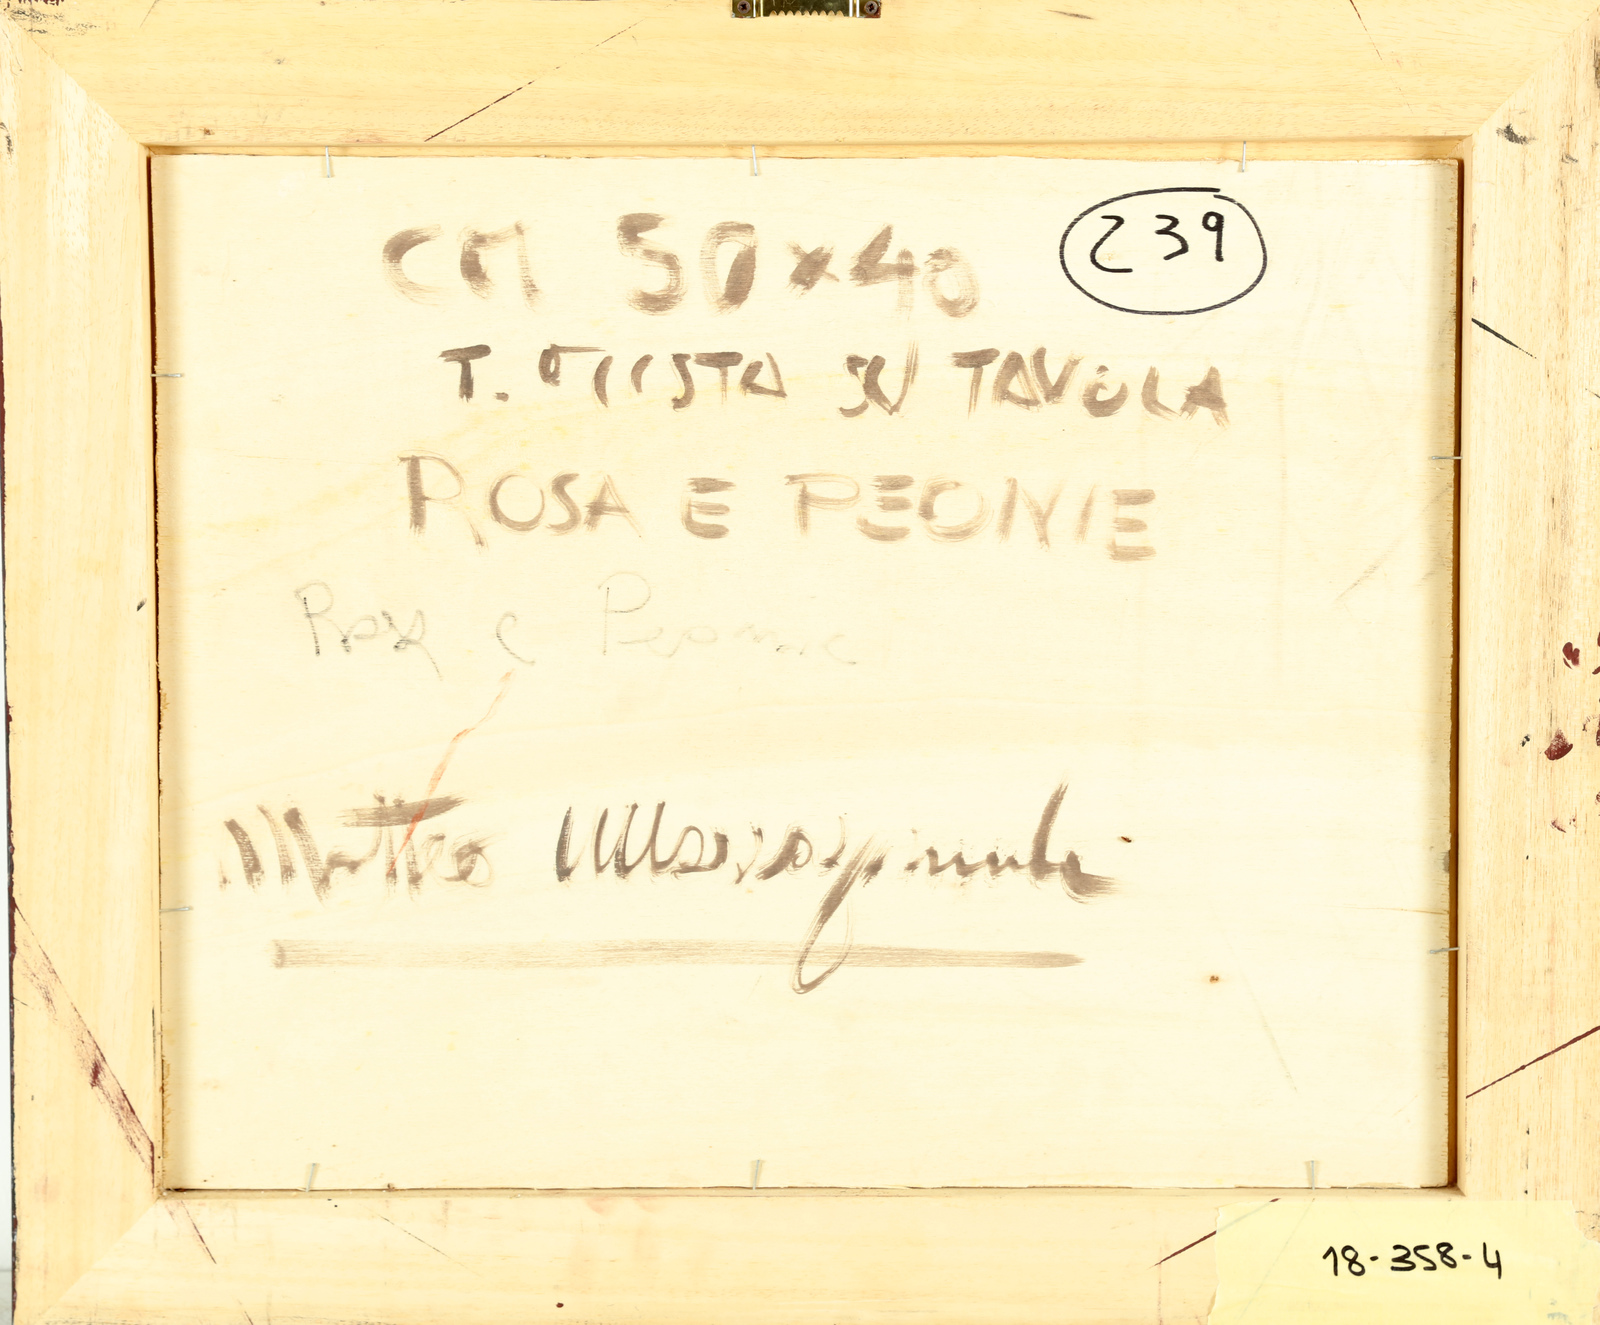 CM 50x40
239
T. MISTA SU TAVOLA
ROSA E PEONIE
Rosa e Peonie
Matteo Massagrande
18-358-4